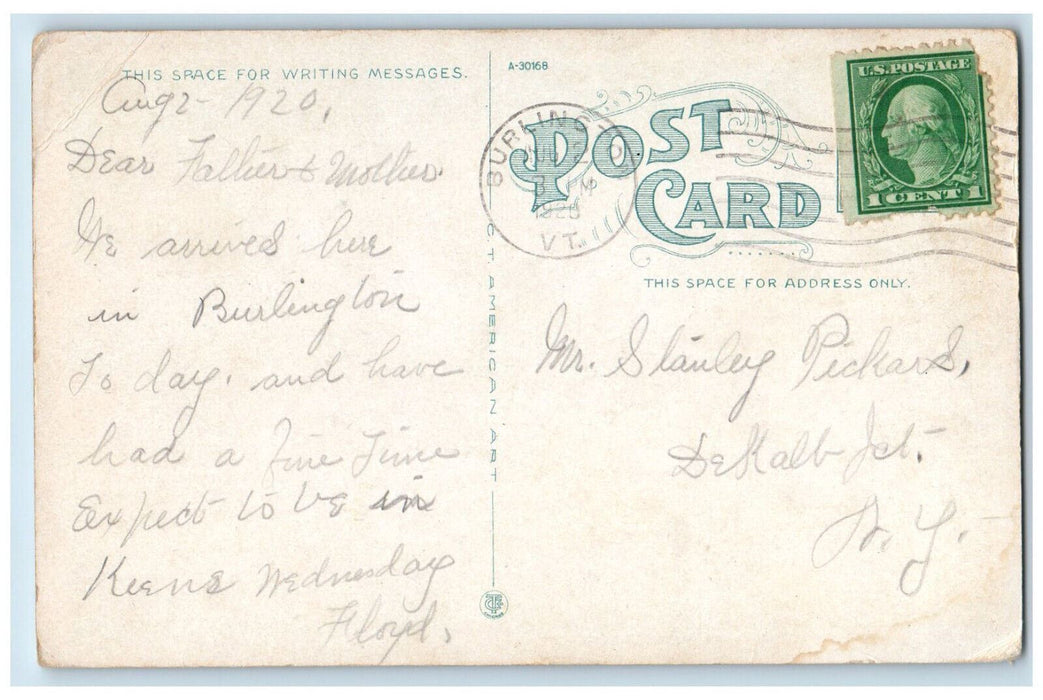 THIS SPACE FOR WRITING MESSAGES.
Aug 2 - 1920,
Dear Father & Mother.
We arrived here
in Burlington
To day. and have
had a Fine Time
Expect to be in
Keene Wednesday
Floyd.
A-30168
C.T. AMERICAN ART
POST
CARD
BURLINGTON
PM
1920
VT.
U.S. POSTAGE
1 CENT 1
THIS SPACE FOR ADDRESS ONLY.
Mr. Stanley Pickard,
DeKalb Jct.
N. Y.